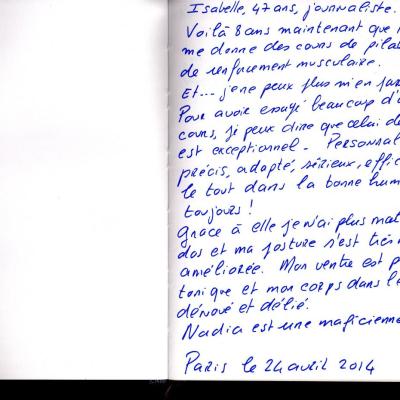 Isabelle, 47 ans, journaliste.
Voilà 8 ans maintenant que
me donne des cours de pila
de renforcement musculaire.
Et... je ne peux plus m'en
Pour avoir essayé beaucoup d'
cours, je peux dire que celui de
est exceptionnel - Personnal
précis, adapté, sérieux, effic
le tout dans la bonne hum
toujours !
Grâce à elle je n'ai plus mal
dos et ma posture s'est très
améliorée. Mon ventre est
tonique et mon corps dans l'e
dénoué et délié.
Nadia est une magicienne
Paris le 24 avril 2014